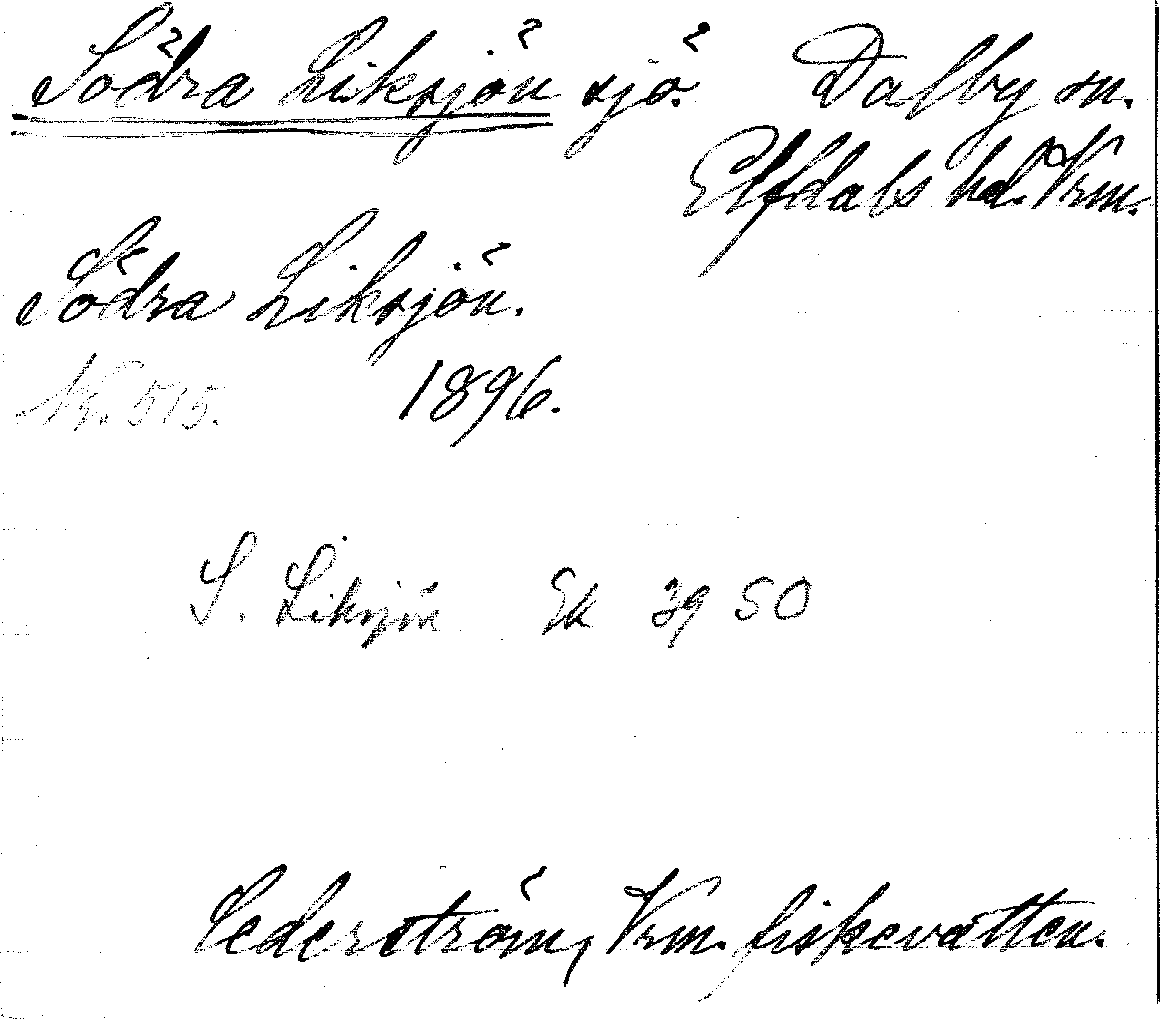 Södra Liksjön sjö. Dalby sn.
Elfdals hd. Vrm.
Södra Liksjön.
Nr. 515. 1896.
S. Liksjön Ek 39 SO
Cederström, Vrm. fiskevatten.